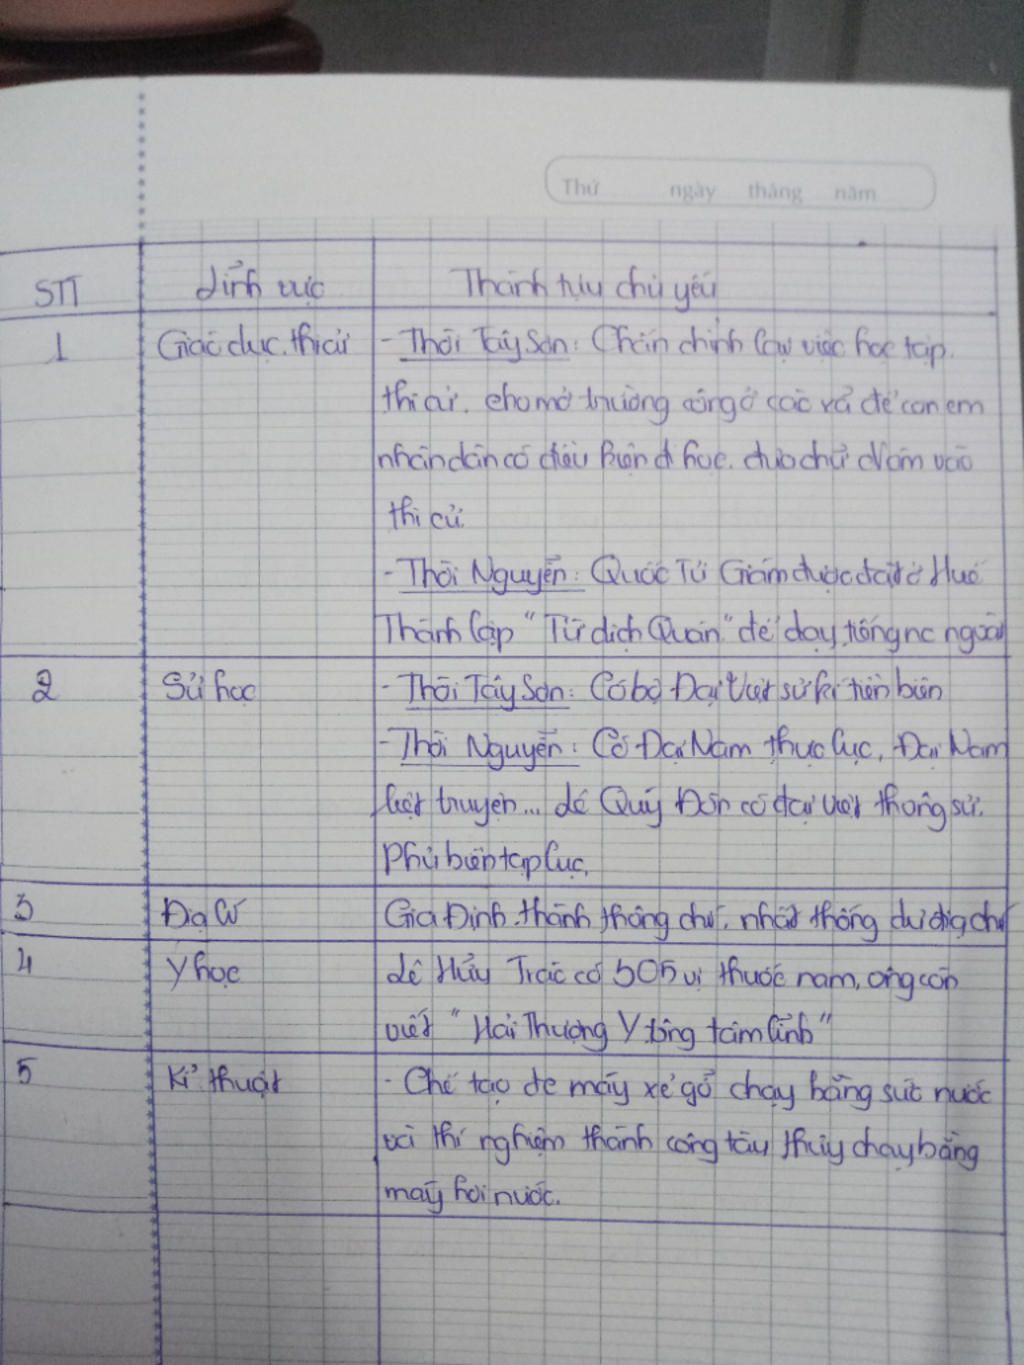 Thứ ngày tháng năm
STT Lĩnh vực Thành tựu chủ yếu
1 Giáo dục, thi cử - Thời Tây Sơn: Chấn chỉnh lại việc học tập,
thi cử, cho mở trường công ở các xã để con em
nhân dân có điều kiện đi học, đưa chữ Nôm vào
thi cử
- Thời Nguyễn: Quốc Tử Giám được đặt ở Huế
Thành lập "Tứ dịch Quán" để dạy tiếng nc ngoài
2 Sử học - Thời Tây Sơn: Có bộ Đại Việt sử kí tiền biên
- Thời Nguyễn: Có Đại Nam thực lục, Đại Nam
liệt truyện... Lê Quý Đôn có đại việt thông sử,
Phủ biên tạp lục,
3 Địa lí Gia Định thành thông chí, nhất thống dư địa chí
4 Y học Lê Hữu Trác có 305 vị thuốc nam, ông còn
viết "Hải Thượng Y tông tâm lĩnh"
5 Kĩ thuật - Chế tạo đc máy xẻ gỗ chạy bằng sức nước
và thí nghiệm thành công tàu thủy chạy bằng
máy hơi nước.